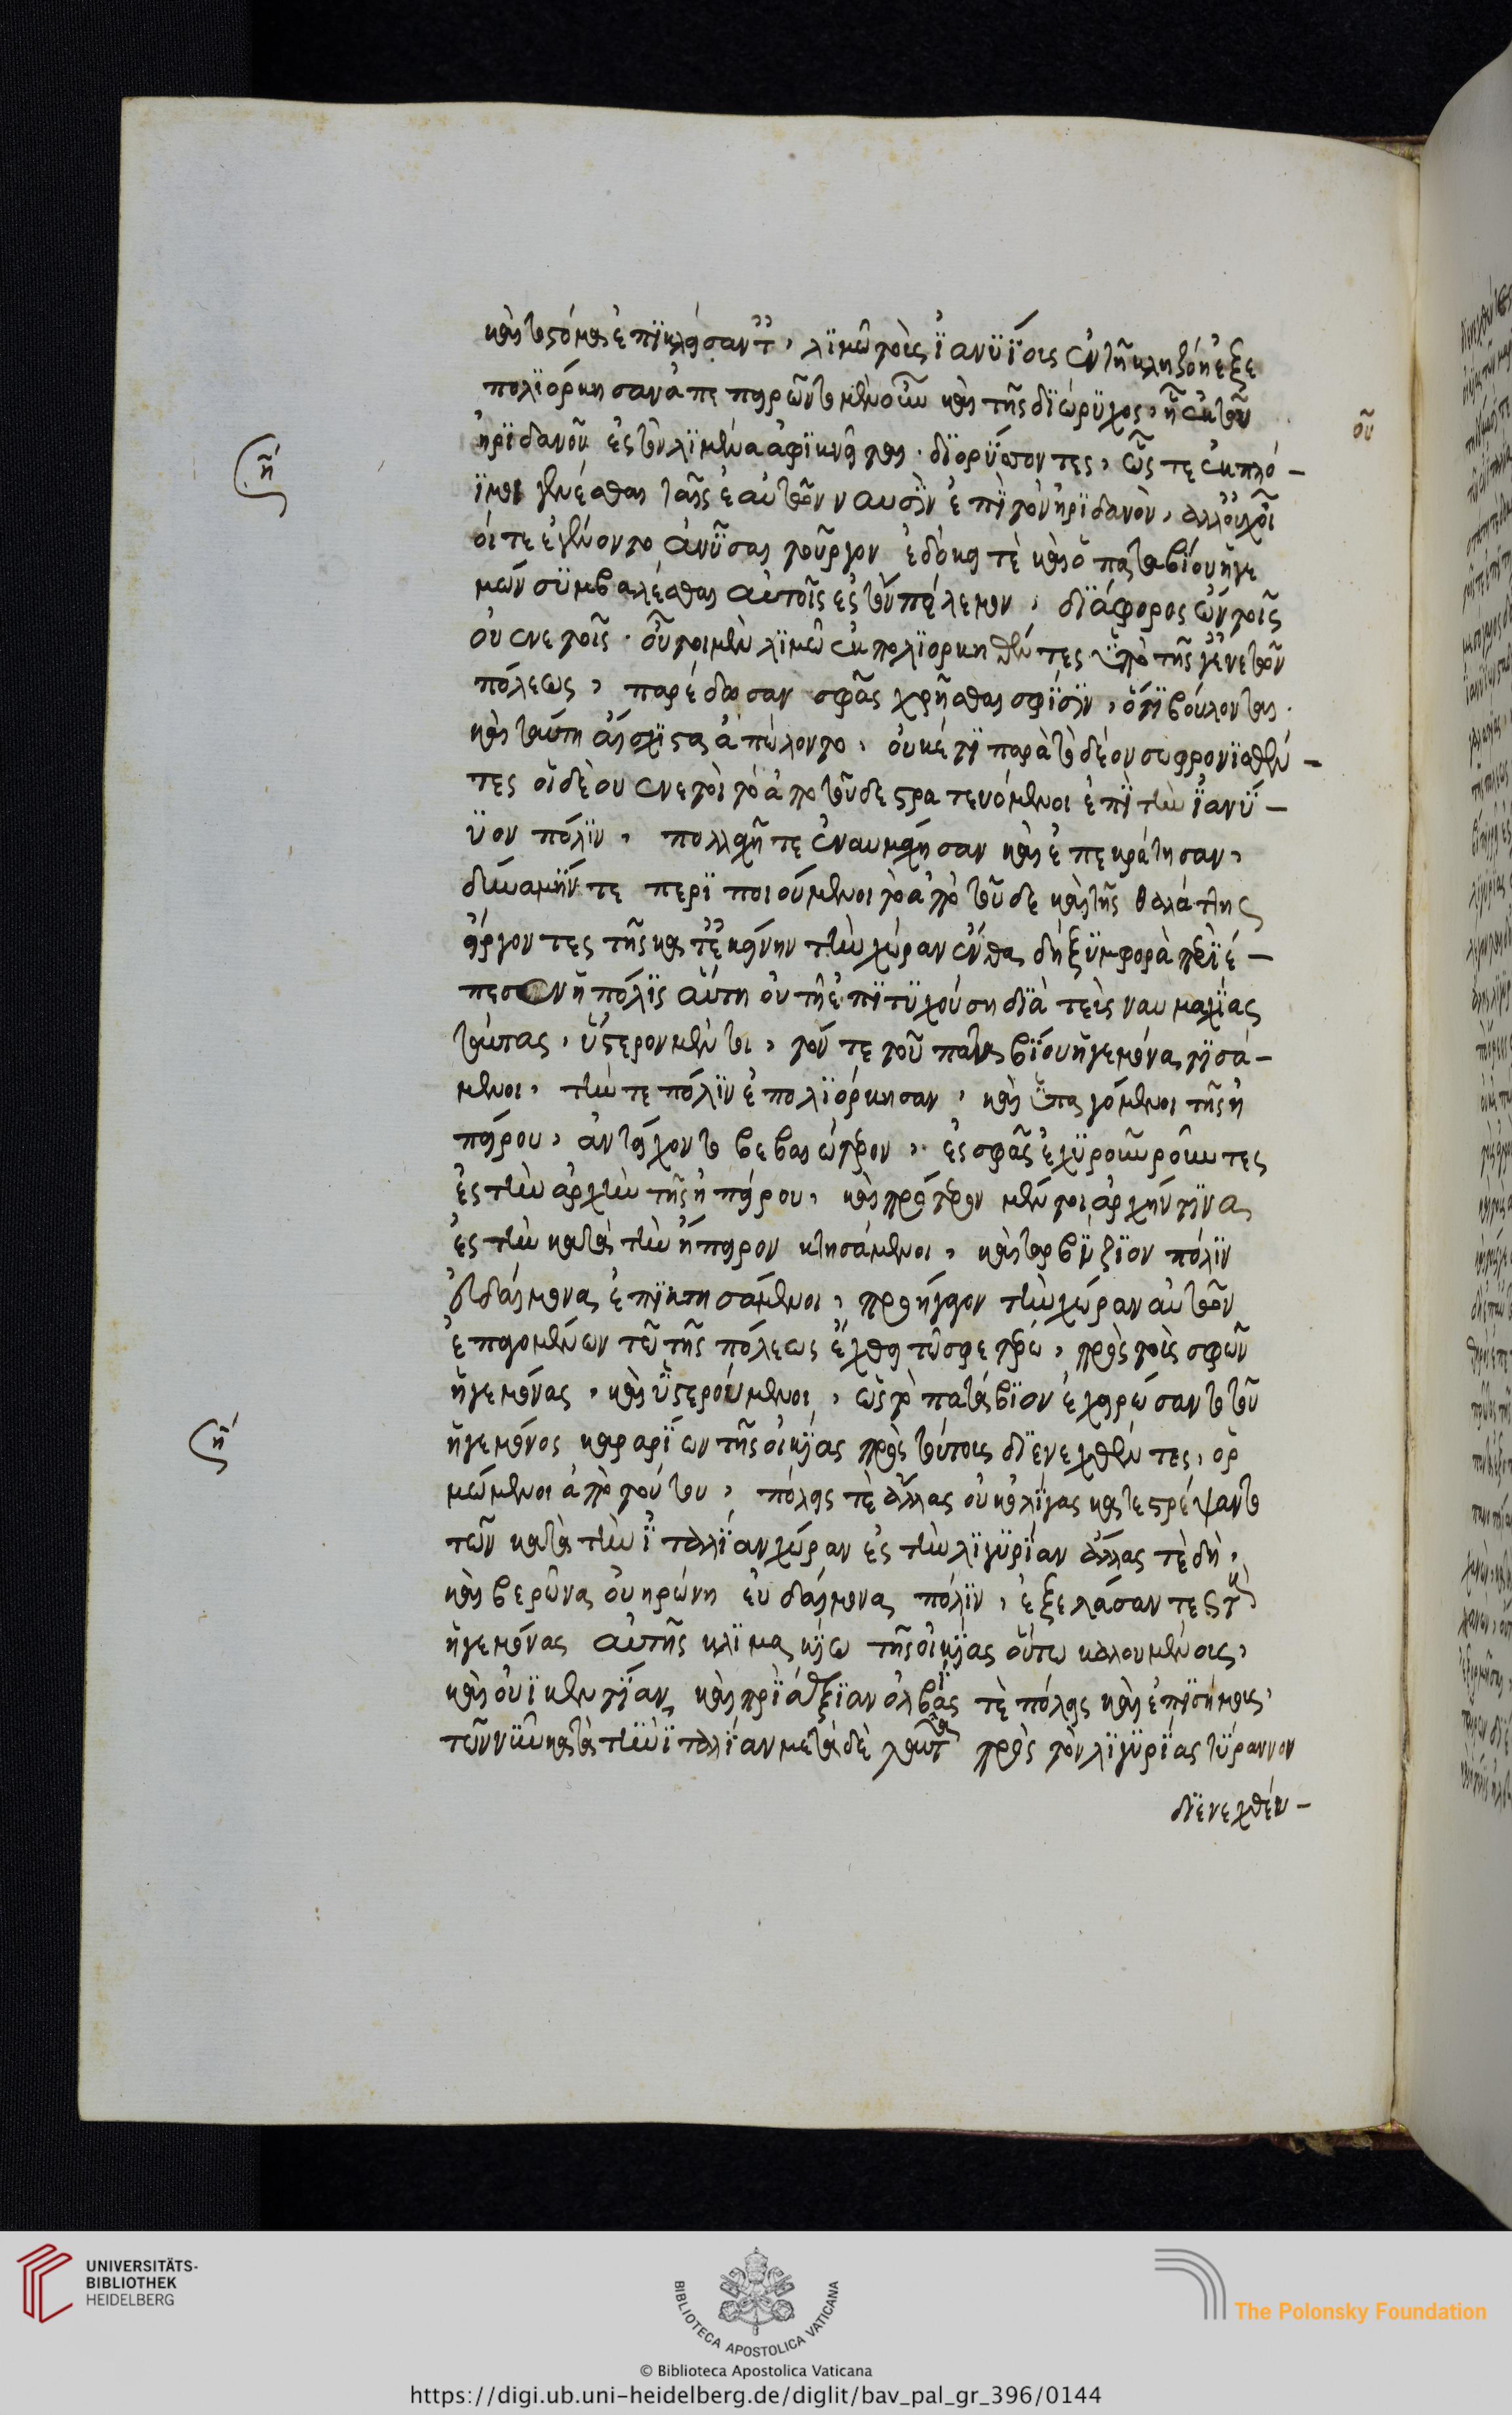 καὶ τὸ στόμα ἐπϊκλείσαντες, λϊμῶ τοὺς ἰανυΐους ἐν τῆ κληζόη ἐξε
πολϊόρκησαν ἀπεπειρῶντο μὲν οὖν καὶ τῆς δϊώρϋχος, ἣ ἐκ τοῦ
ἠρϊδανοῦ ἐς τὸν λϊμένα ἀφϊκνεῖται. δϊορύττοντες, ὥς τε ἐκπλό-
ϊμα γενέσθαι ταῖς ἑαυτῶν ναυσὶν ἐπὶ τὸν ἠρϊδανὸν, ἀλλοὐχοῖ
οί τε ἐγένοντο ἀνῦσαι τοὖργον ἐδόκει τὲ καὶ ὁ παταβίου ἡγε
μὼν συμβαλέσθαι αὐτοῖς ἐς τὸν πόλεμον, δϊάφορος ὢν τοῖς
οὐενετοῖς. οὗτοι μὲν λϊμῶ ἐκπολϊορκηθέντες ὑπὸ τῆς ἐνετῶν
πόλεως, παρέδωσαν σφᾶς χρῆσθαι σφίσϊν, ὅτϊ βούλονται.
καὶ ταύτη αἴσχϊστα ἀπώλοντο, οὐκέτϊ παρὰ τὸ δέον σωφρονϊσθέν-
τες οἱ δὲ οὐενετοὶ τὸ ἀπὸ τοῦδε στρατευόμενοι ἐπὶ τὴν ἰανΰ-
ϋον πόλϊν, πολλαχῆ τε ἐναυμάχησαν καὶ ἐπεκράτησαν,
δύναμΐν τε περϊποιούμενοι τὸ ἀπὸ τοῦδε καὶ τῆς θαλάττης
ἄρχοντες τῆς κατ ἐκείνην τὴν χώραν ἔνθα δὴ ξυμφορὰ περϊέ-
πεσεν ἡ πόλϊς αὕτη οὐ τῆ ἐπϊτϋχούση δϊὰ τὰς ναυμαχϊας
ταύτας, ὕστερον μέντοι, τόν τε τοῦ παταβϊου ἡγεμόνα τϊσά-
μενοι, τήν τε πόλϊν ἐπολϊόρκησαν, καὶ ὑπαγόμενοι τῆς ἠ
πείρου, ἀντείχοντο βεβαιώτερον, ἐς σφᾶς ἐχϋροῦντες
ἐς τὴν ἀρχὴν τῆς ἠπείρου, καὶ πρότερον μέν τοι ἀρχήν τϊνα
ἐς τὴν κατὰ τὴν ἤπειρον κτησάμενοι, καὶ ταρβΰζϊον πόλϊν
εὐδαίμονα ἐπϊκτησάμενοι, προήγαγον τὴν χώραν αὐτῶν
ἐπαγομένων τῶ τῆς πόλεως ἔχθει τῶ σφετέρω, πρὸς τοὺς σφῶν
ἡγεμόνας, καὶ ὑστερούμενοι, ὡς τὸ πατάβϊον ἐχειρώσαντο τοῦ
ἡγεμόνος καραρΐων τῆς οἰκΐας πρὸς τούτους δϊενεχθέντες, ὁρ
μώμενοι ἀπὸ τούτου, πόλεις τὲ ἄλλας οὐκ ὀλΐγας κατεστρέψαντο
τῶν κατὰ τὴν ἰταλΐαν χώραν ἐς τὴν λϊγϋρΐαν ἄλλας τὲ δὴ,
καὶ βερῶνα οὐηρώνη εὐδαίμονα πόλϊν, ἐξελάσαντες τοὺς
ἡγεμόνας αὐτῆς κλϊμακΐω τῆς οἰκΐας οὕτω καλουμένους,
καὶ οὐϊκεντΐαν, καὶ πρϊάξϊαν ὀλβϊας τὲ πόλεις καὶ ἐπϊσήμους,
τῶν νῦν κατὰ τὴν ἰταλΐαν μετὰ δὲ ταῦτα πρὸς τὸν λϊγϋρΐας τϋραννον
δϊενεχθέν-